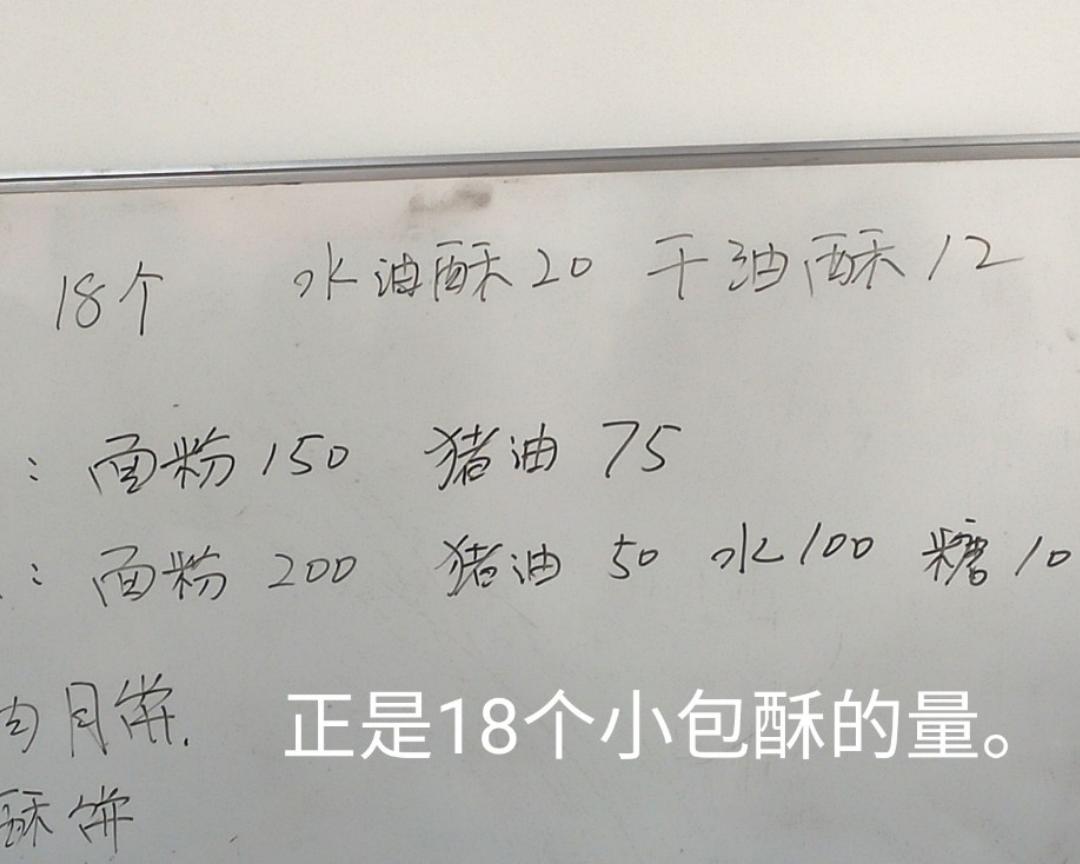 18个 水油酥20 干油酥12
: 面粉150 猪油75
: 面粉200 猪油50 水100 糖10
肉月饼.
正是18个小包酥的量。
酥饼